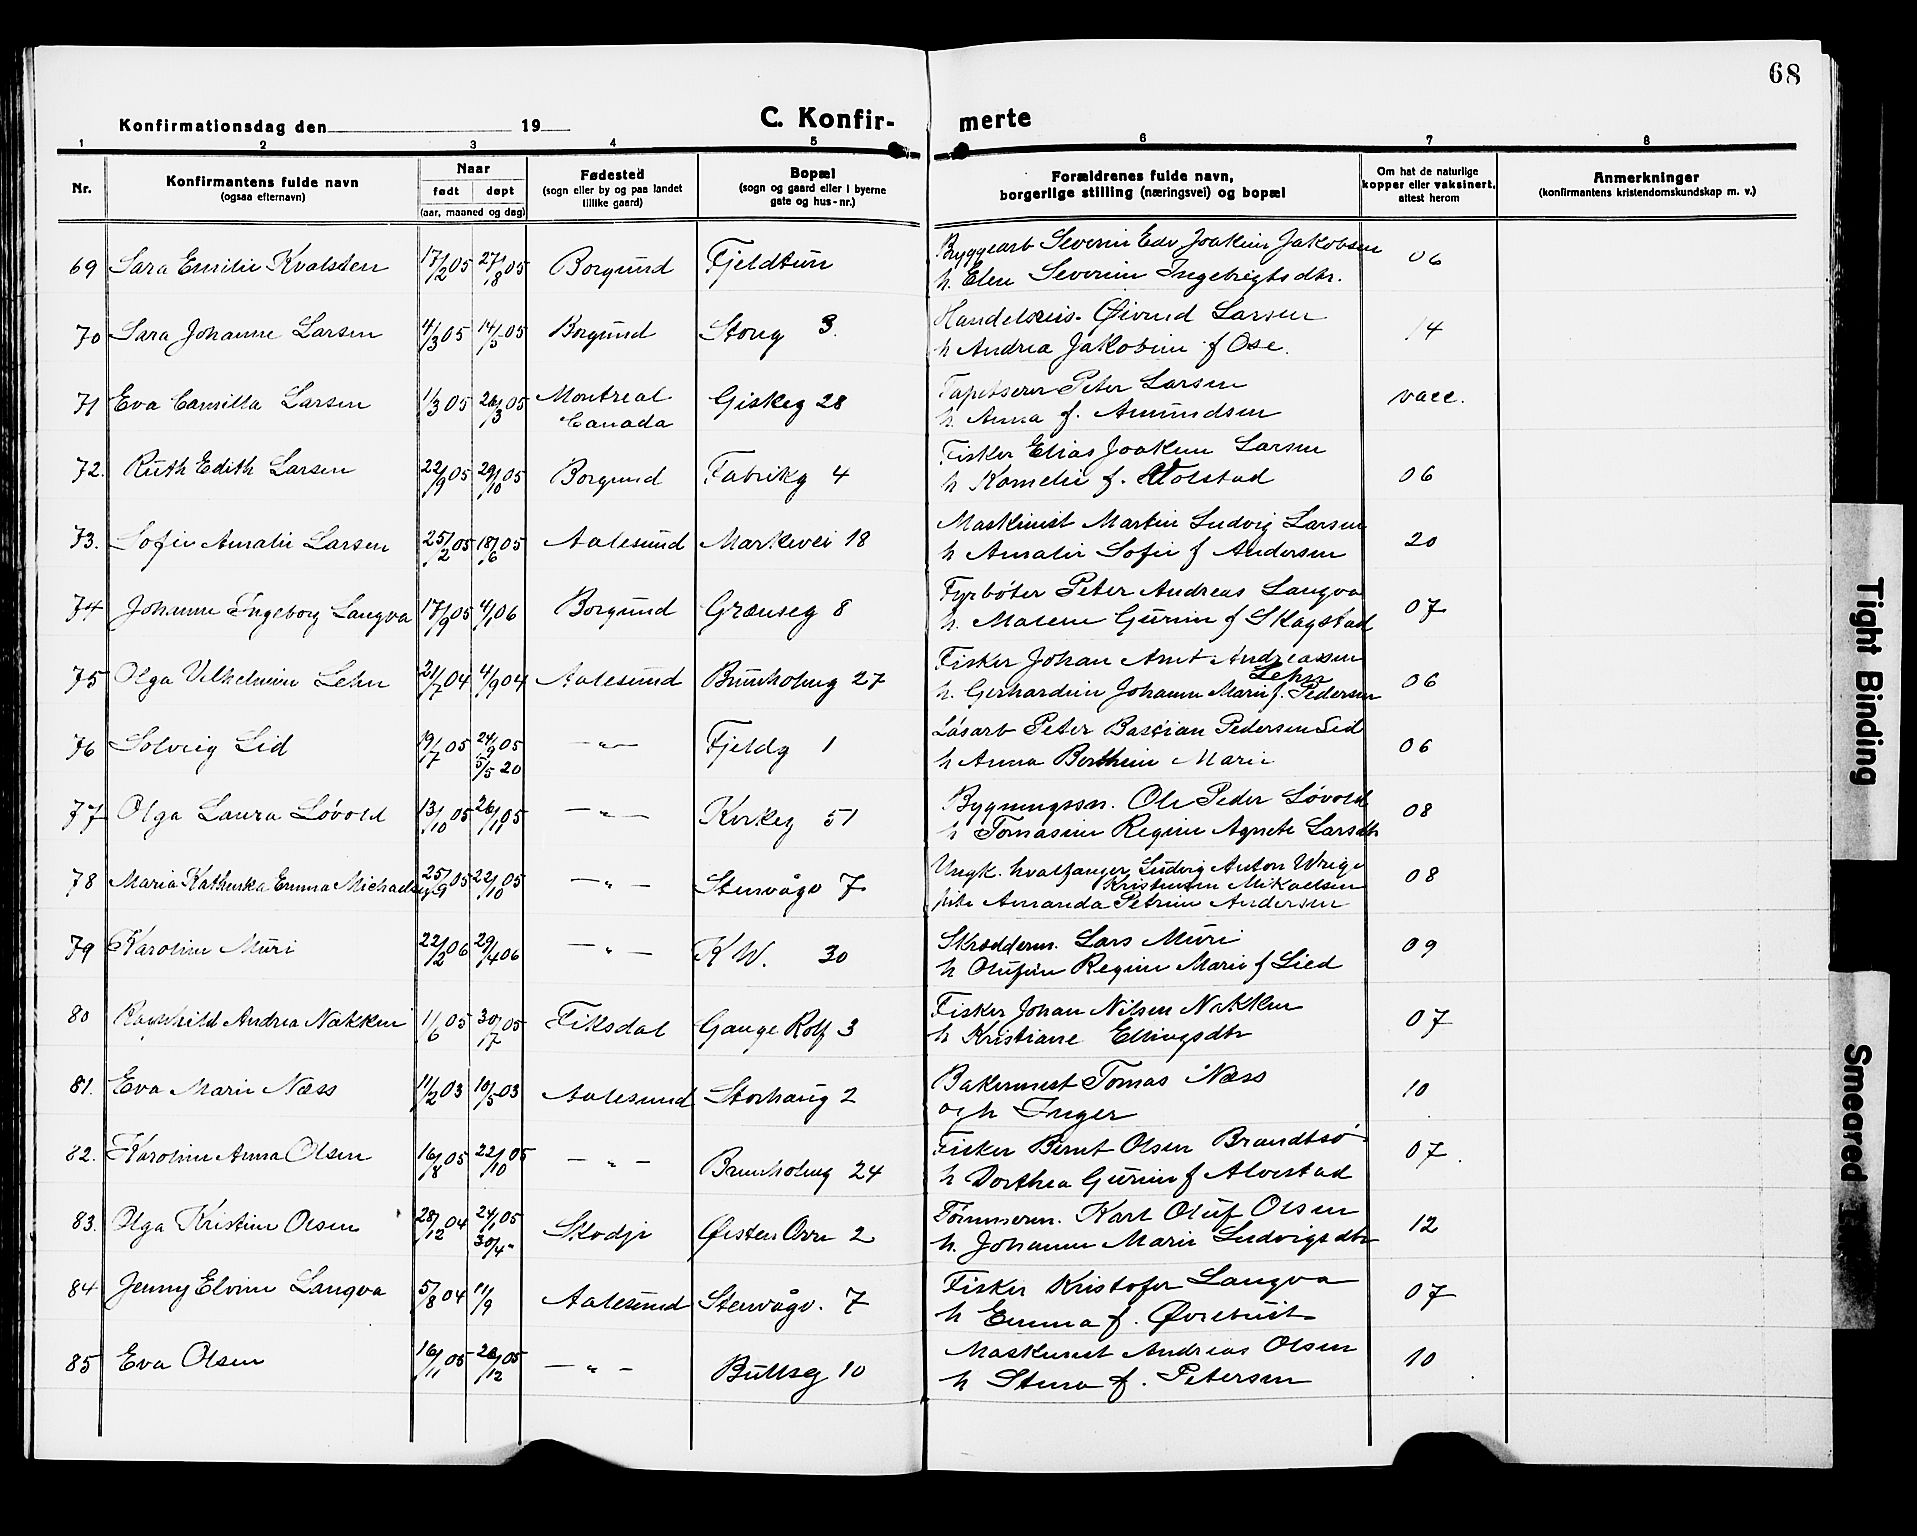 68
Konfirmationsdag den 19
C. Konfir-
merte
1 2 3 4 5 6 7 8
Nr.
Konfirmantens fulde navn
(ogsaa efternavn)
Naar
født døpt
(aar, maaned og dag)
Fødested
(sogn eller by og paa landet
tillike gaard)
Bopæl
(sogn og gaard eller i byerne
gate og hus-nr.)
Forældrenes fulde navn,
borgerlige stilling (næringsvei) og bopæl
Om hat de naturlige
kopper eller vaksinert,
attest herom
Anmerkninger
(konfirmantens kristendomskundskap m. v.)
69 Sara Emilie Kvalsten 17/2 05 27/8 05 Borgund Fjeldtun Byggearb Severin Edv Joakim Jakobsen 06
h. Elen Severine Ingebrigtsdtr.
70 Sara Johanne Larsen 4/3 05 14/5 05 Borgund Storg 3. Handelsreis. Øivind Larsen 14
h Andrea Jakobine f Ose.
71 Eva Camilla Larsen 1/3 05 26/3 05 Montreal Giskeg 28 Tapetserer Peter Larsen vacc.
Canada h. Anna f. Amundsen
72. Ruth Edith Larsen 22/9 05 29/10 05 Borgund Fabrikg 4 Fisker Elias Joakim Larsen 06
h Kornelie f. Holstad
73. Sofie Amalie Larsen 25/2 05 18/6 05 Aalesund Markevei 18 Maskinist Martin Ludvig Larsen 20
h Amalie Sofie f Andersen
74 Johanne Ingeborg Langva 17/9 05 4/1 06 Borgund Grænseg 8 Fyrbøter Peter Andreas Langva 07
h. Malene Gurine f Skagstad
75 Olga Vilhelmine Lehn 21/7 04 4/9 04 Aalesund Brunholmg 27 Fisker Johan Arnt Andreassen 06
Lehn
h. Gerhardine Johanne Marie f. Pedersen
76 Solveig Lid 19/7 05 24/9 05 —"— Fjeldg 1 Løsarb Peter Bascian Pedersen Lid 06
5/5 20 h Anna Berthine Marie
77 Olga Laura Løvold 13/10 05 26/11 05 —"— Kirkeg 51 Bygningssn. Ole Peder Løvold 08
h Tomasine Regine Agnete Larsdtr
78 Maria Kathinka Emma Michaelsen 25/9 05 22/10 05 —"— Stenvågv 7 Ungk. hvalfanger Ludvig Anton Wrige 08
Kristensen Mikaelsen
pike Amanda Petrine Andersen
79 Karoline Muri 22/2 06 29/4 06 —"— K W. 30 Skrædderm. Lars Muri 09
h Olufine Regine Marie f Lied
80 Ragnhild Andrea Nakken 1/6 05 30/7 05 Fiksdal Gange Rolf 3 Fisker Johan Nilsen Nakken 07
h Kristiane Ellingsdtr
81. Eva Marie Næss 11/2 03 10/5 03 Aalesund Storhaug 2 Bakermest Tomas Næss 10
og h Inger
82. Karoline Anna Olsen 16/8 05 22/10 05 —"— Brunholmg 24 Fisker Bernt Olsen Brandtsø 07.
h Dorthea Gurine f Alvestad
83. Olga Kristine Olsen 28/12 04 24/1 05 Skodje Øistens Orre 2 Tømmerm. Karl Oluf Olsen 12
30/4 " h. Johanne Marie Ludvigsdtr
84 Jenny Elvine Langva 5/8 04 11/9 Aalesund Stenvågv. 7 Fisker Kristofer Langva 07
h Emma f. Øvrebust
85 Eva Olsen 16/11 05 26/12 05 —"— Bullsg 10 Maskinist Andreas Olsen 10
h Stina f. Petersen
Tight Binding
Smeared